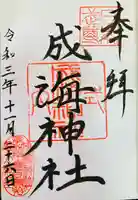 奉拝
成海神社
令和三年十一月二十六日